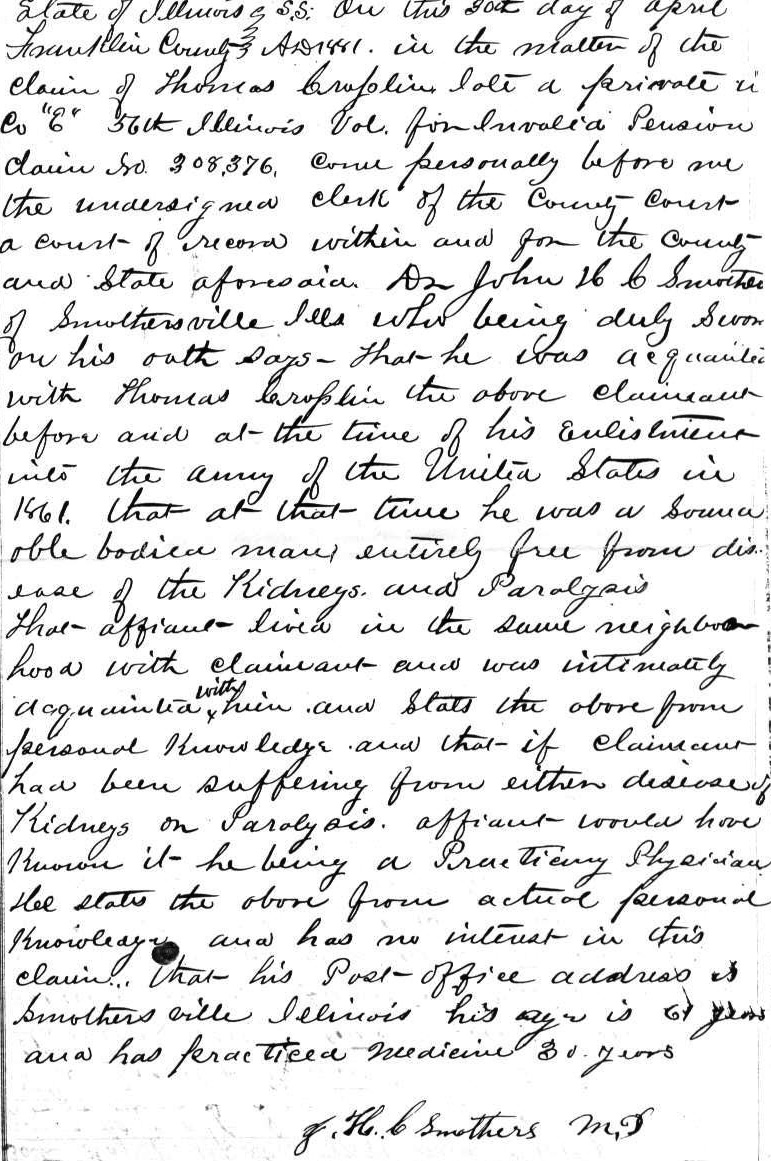 State of Illinois } S.S. On this 30th day of April
Franklin County } AD 1881. in the matter of the
claim of Thomas Croslin late a private in
Co "E" 56th Illinois Vol. for Invalid Pension
claim No. 308,376. Come personally before me
the undersigned clerk of the County Court
a court of record within and for the County
and State aforesaid. Dr John H C Smothers
of Smothersville Ills who being duly Sworn
on his oath says - that he was acquainted
with Thomas Croslin the above claimant
before and at the time of his Enlistment
into the army of the United States in
1861. that at that time he was a sound
able bodied man, entirely free from dis-
ease of the Kidneys. and Paralysis
that affiant lived in the same neighbor
hood with claimant and was intimately
acquainted with him. and States the above from
personal Knowledge. and that if claimant
had been suffering from either disease of
Kidneys or Paralysis. affiant would have
Known it he being a Practicing Physician
He states the above from actual personal
Knowledge and has no interest in this
claim.. that his Post office address is
Smothersville Illinois his age is 61 years
and has practiced Medicine 30. years
J. H. C Smothers M.D